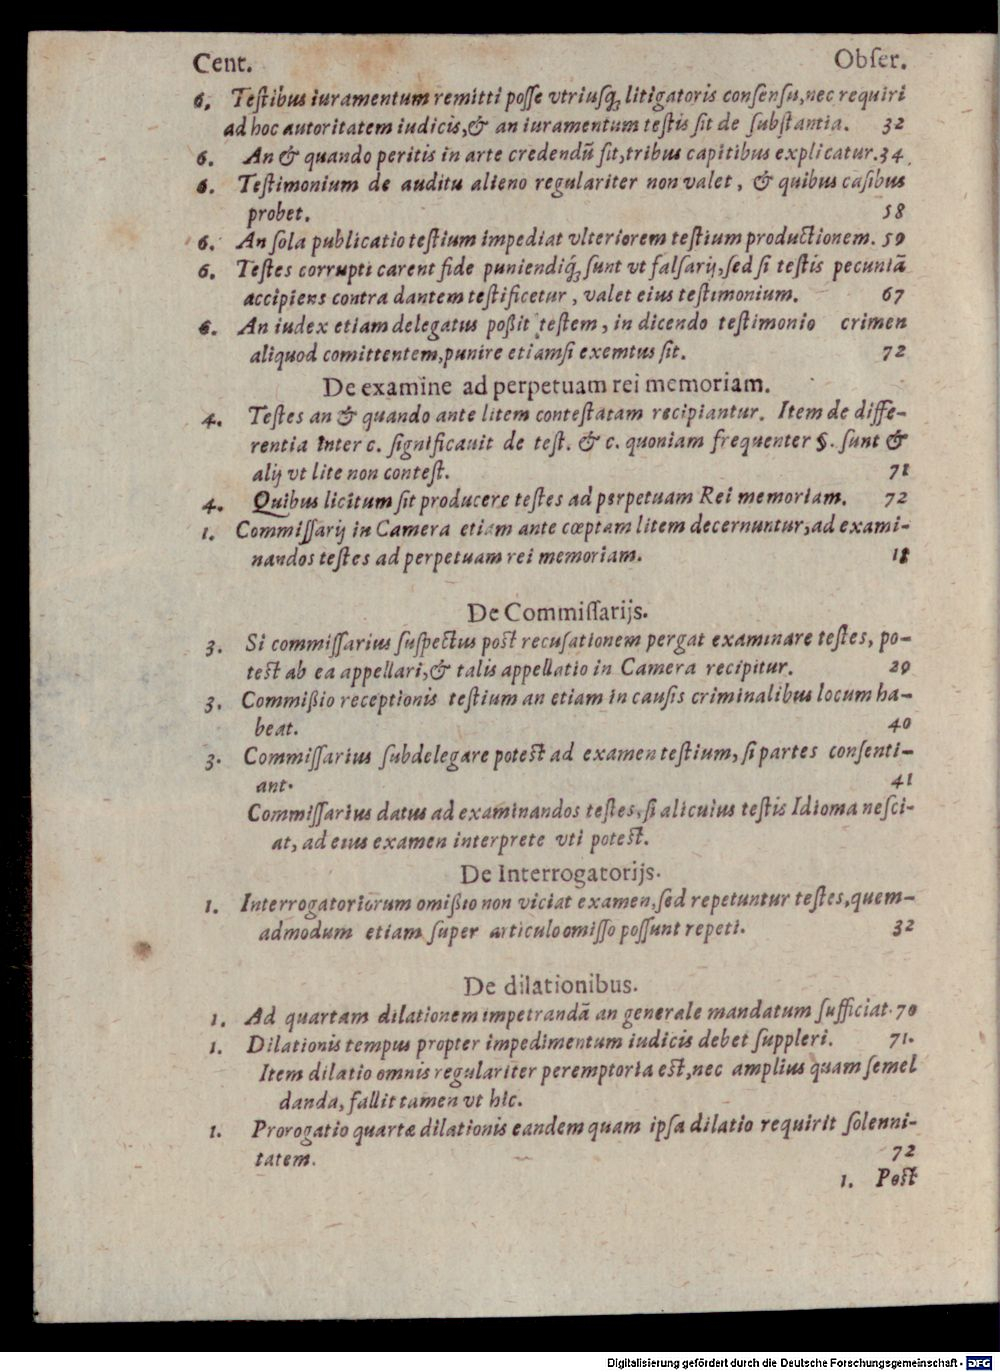 Cent. Obſer.
6. Teſtibus iuramentum remitti poſſe vtriuſq; litigatoris conſenſu, nec requiri
ad hoc autoritatem iudicis, & an iuramentum teſtis ſit de ſubſtantia. 32
6. An & quando peritis in arte credendũ ſit, tribus capitibus explicatur. 34
6. Teſtimonium de auditu alieno regulariter non valet, & quibus caſibus
probet. 58
6. An ſola publicatio teſtium impediat vlteriorem teſtium productionem. 59
6. Teſtes corrupti carent fide puniendiq́; ſunt vt falſarij, ſed ſi teſtis pecuniã
accipiens contra dantem teſtificetur, valet eius teſtimonium. 67
6. An iudex etiam delegatus poßit teſtem, in dicendo teſtimonio crimen
aliquod comittentem, punire etiamſi exemtus ſit. 72
De examine ad perpetuam rei memoriam.
4. Teſtes an & quando ante litem conteſtatam recipiantur. Item de diffe-
rentia inter c. ſignificauit de teſt. & c. quoniam frequenter §. ſunt &
alij vt lite non conteſt. 71
4. Quibus licitum ſit producere teſtes ad perpetuam Rei memoriam. 72
1. Commiſſarij in Camera etiam ante cœptam litem decernuntur, ad exami-
nandos teſtes ad perpetuam rei memoriam. 18
De Commiſſarijs.
3. Si commiſſarius ſuſpectus poſt recuſationem pergat examinare teſtes, po-
teſt ab ea appellari, & talis appellatio in Camera recipitur. 29
3. Commißio receptionis teſtium an etiam in cauſis criminalibus locum ha-
beat. 40
3. Commiſſarius ſubdelegare poteſt ad examen teſtium, ſi partes conſenti-
ant. 41
Commiſſarius datus ad examinandos teſtes, ſi alicuius teſtis Idioma neſci-
at, ad eius examen interprete vti poteſt.
De Interrogatorijs.
1. Interrogatoriorum omißio non viciat examen, ſed repetuntur teſtes, quem-
admodum etiam ſuper articulo omiſſo poſſunt repeti. 32
De dilationibus.
1. Ad quartam dilationem impetrandã an generale mandatum ſufficiat. 70
1. Dilationis tempus propter impedimentum iudicis debet ſuppleri. 71.
Item dilatio omnis regulariter peremptoria eſt, nec amplius quam ſemel
danda, fallit tamen vt hic.
1. Prorogatio quartæ dilationis eandem quam ipſa dilatio requirit ſolenni-
tatem. 72
1. Poſt
Digitalisierung gefördert durch die Deutsche Forschungsgemeinschaft - DFG